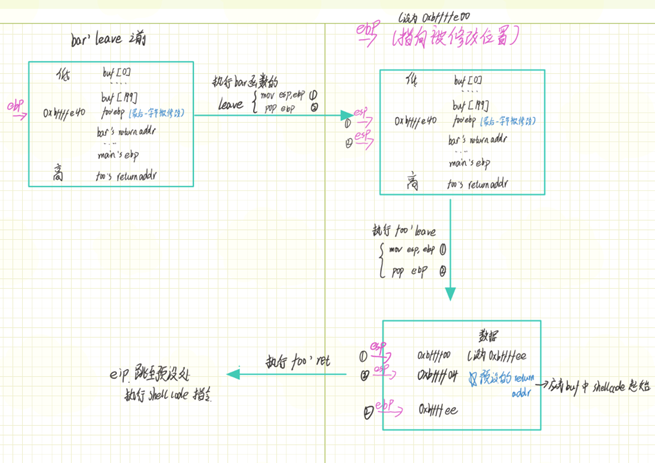 bar' leave 之前
低 buf[0]
....
buf[199]
ebp
0xbffffe40 foo'ebp (最后一字节被修改)
bar's return addr
....
main's ebp
高 foo's return addr
执行bar函数的
leave { mov esp, ebp ①
pop ebp ②
ebp
以为 0xbffffe00
(指向被修改位置)
低 buf[0]
....
buf[199]
esp
① 0xbffffe40 foo'ebp (最后一字节被修改)
esp
② bar's return addr
....
main's ebp
高 foo's return addr
执行 foo' leave
{ mov esp, ebp ①
pop ebp ②
数据
esp
① 以为
esp
② 预设的 return
addr
ebp
②
→ 应为buf中 shellcode 起始
执行 foo' ret
eip 跳至预设处
执行 shellcode 指令